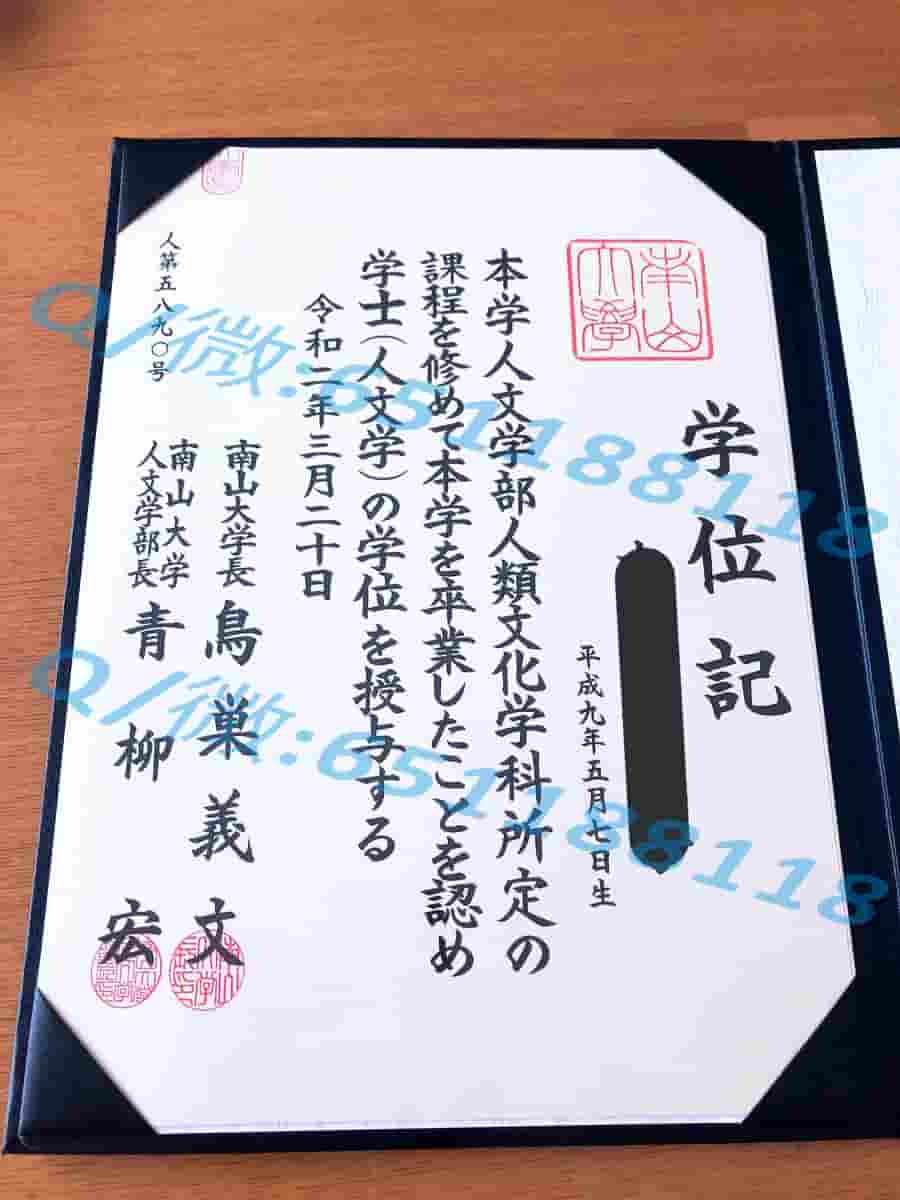 学位記
平成九年五月七日生
本学人文学部人類文化学科所定の
課程を修めて本学を卒業したことを認め
学士(人文学)の学位を授与する
令和二年三月二十日
南山大学長 鳥巣義文
南山大学
人文学部長 青柳宏
人第五八九〇号
南山大学
Q/微:651188118
Q/微:651188118